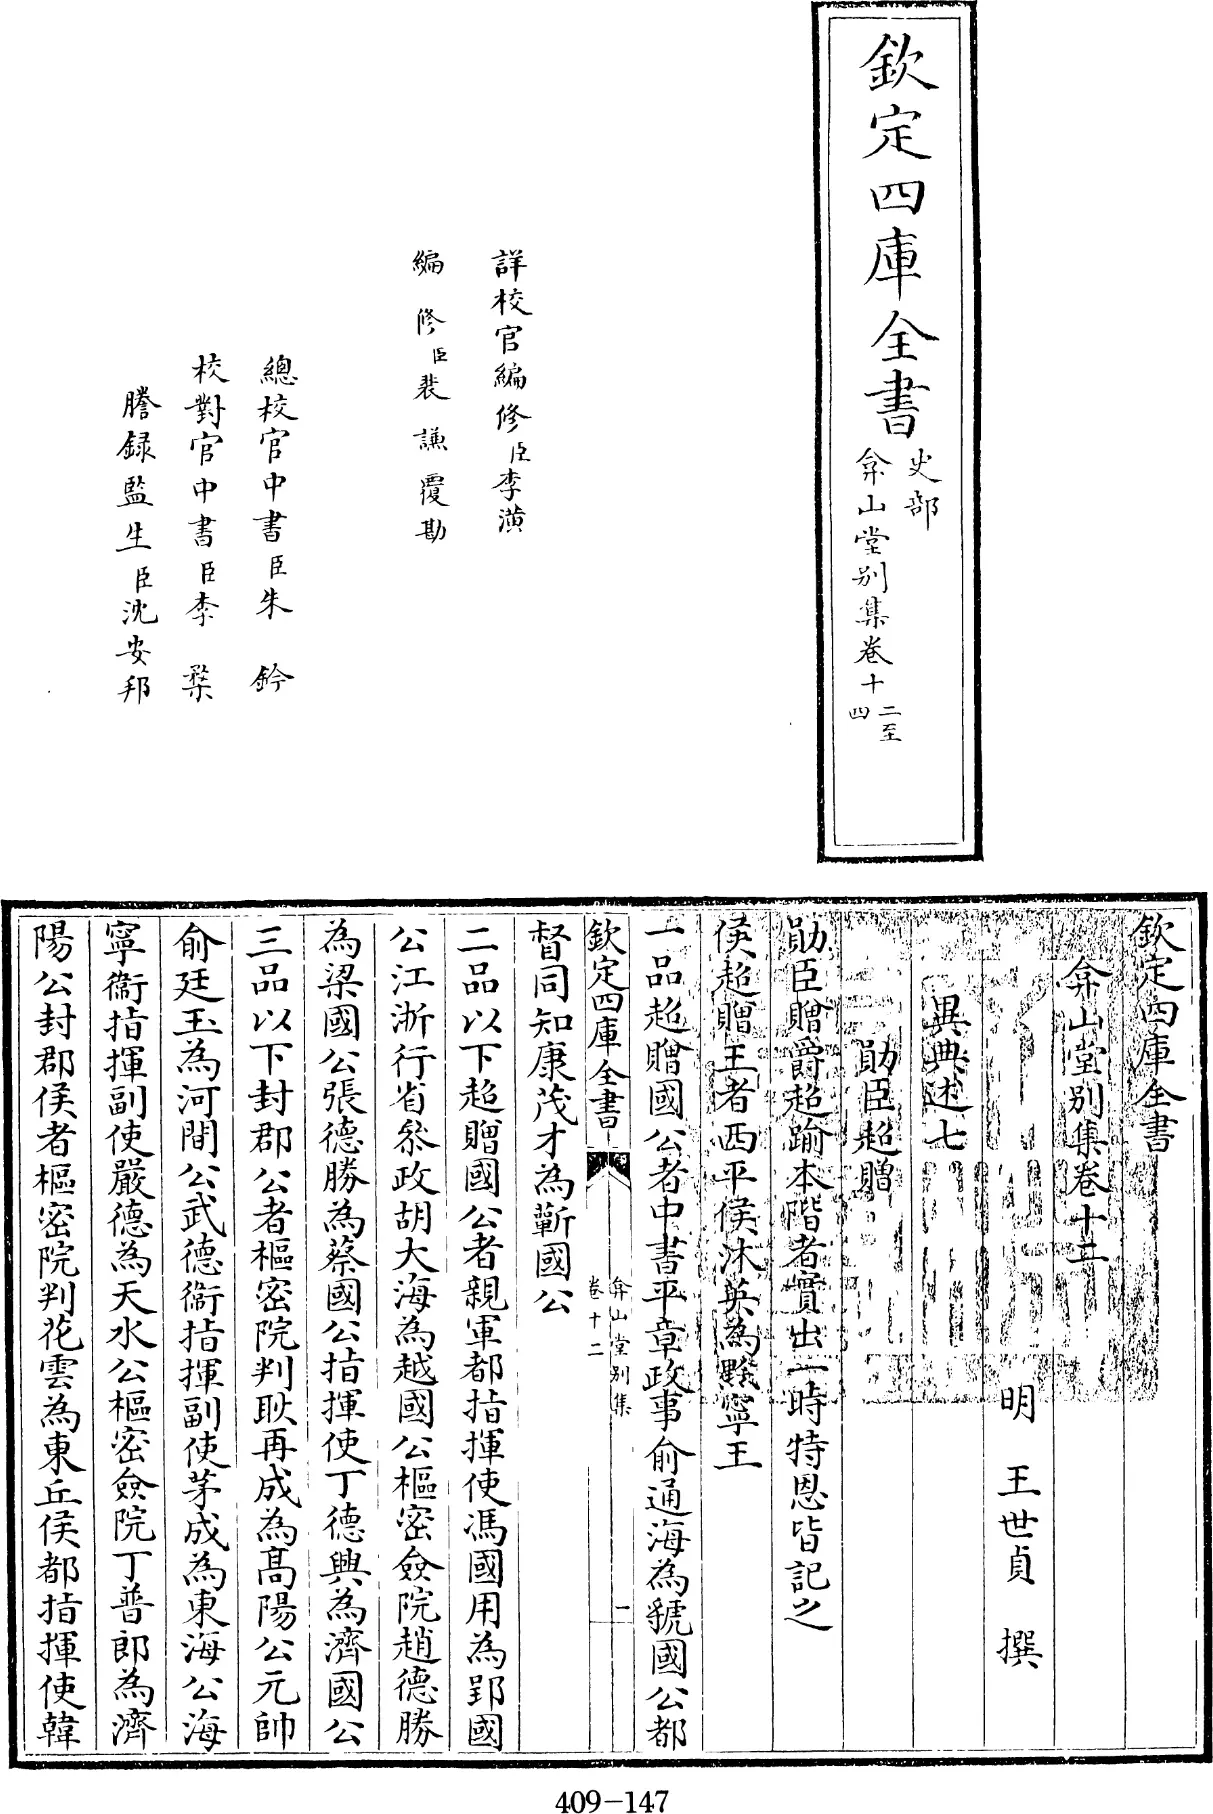 欽定四庫全書
史部
弇山堂別集卷十二至四
詳校官編修臣李潢
編修臣裴謙覆勘
總校官中書臣朱鈐
校對官中書臣李槩
謄録監生臣沈安邦
欽定四庫全書
弇山堂別集卷十二
明 王世貞 撰
異典述七
勛臣超贈
勛臣贈爵超踰本階者實出一時特恩皆記之
侯超贈王者西平侯沐英為黔寧王
一品超贈國公者中書平章政事俞通海為虢國公都
欽定四庫全書
弇山堂別集
卷十二
一
督同知康茂才為蘄國公
二品以下超贈國公者親軍都指揮使馮國用為郢國
公江浙行省叅政胡大海為越國公樞密僉院趙德勝
為梁國公張德勝為蔡國公指揮使丁德興為濟國公
三品以下封郡公者樞密院判耿再成為髙陽公元帥
俞廷玉為河間公武德衞指揮副使茅成為東海公海
寧衞指揮副使嚴德為天水公樞密僉院丁普郎為濟
陽公封郡侯者樞密院判花雲為東丘侯都指揮使韓
409-147